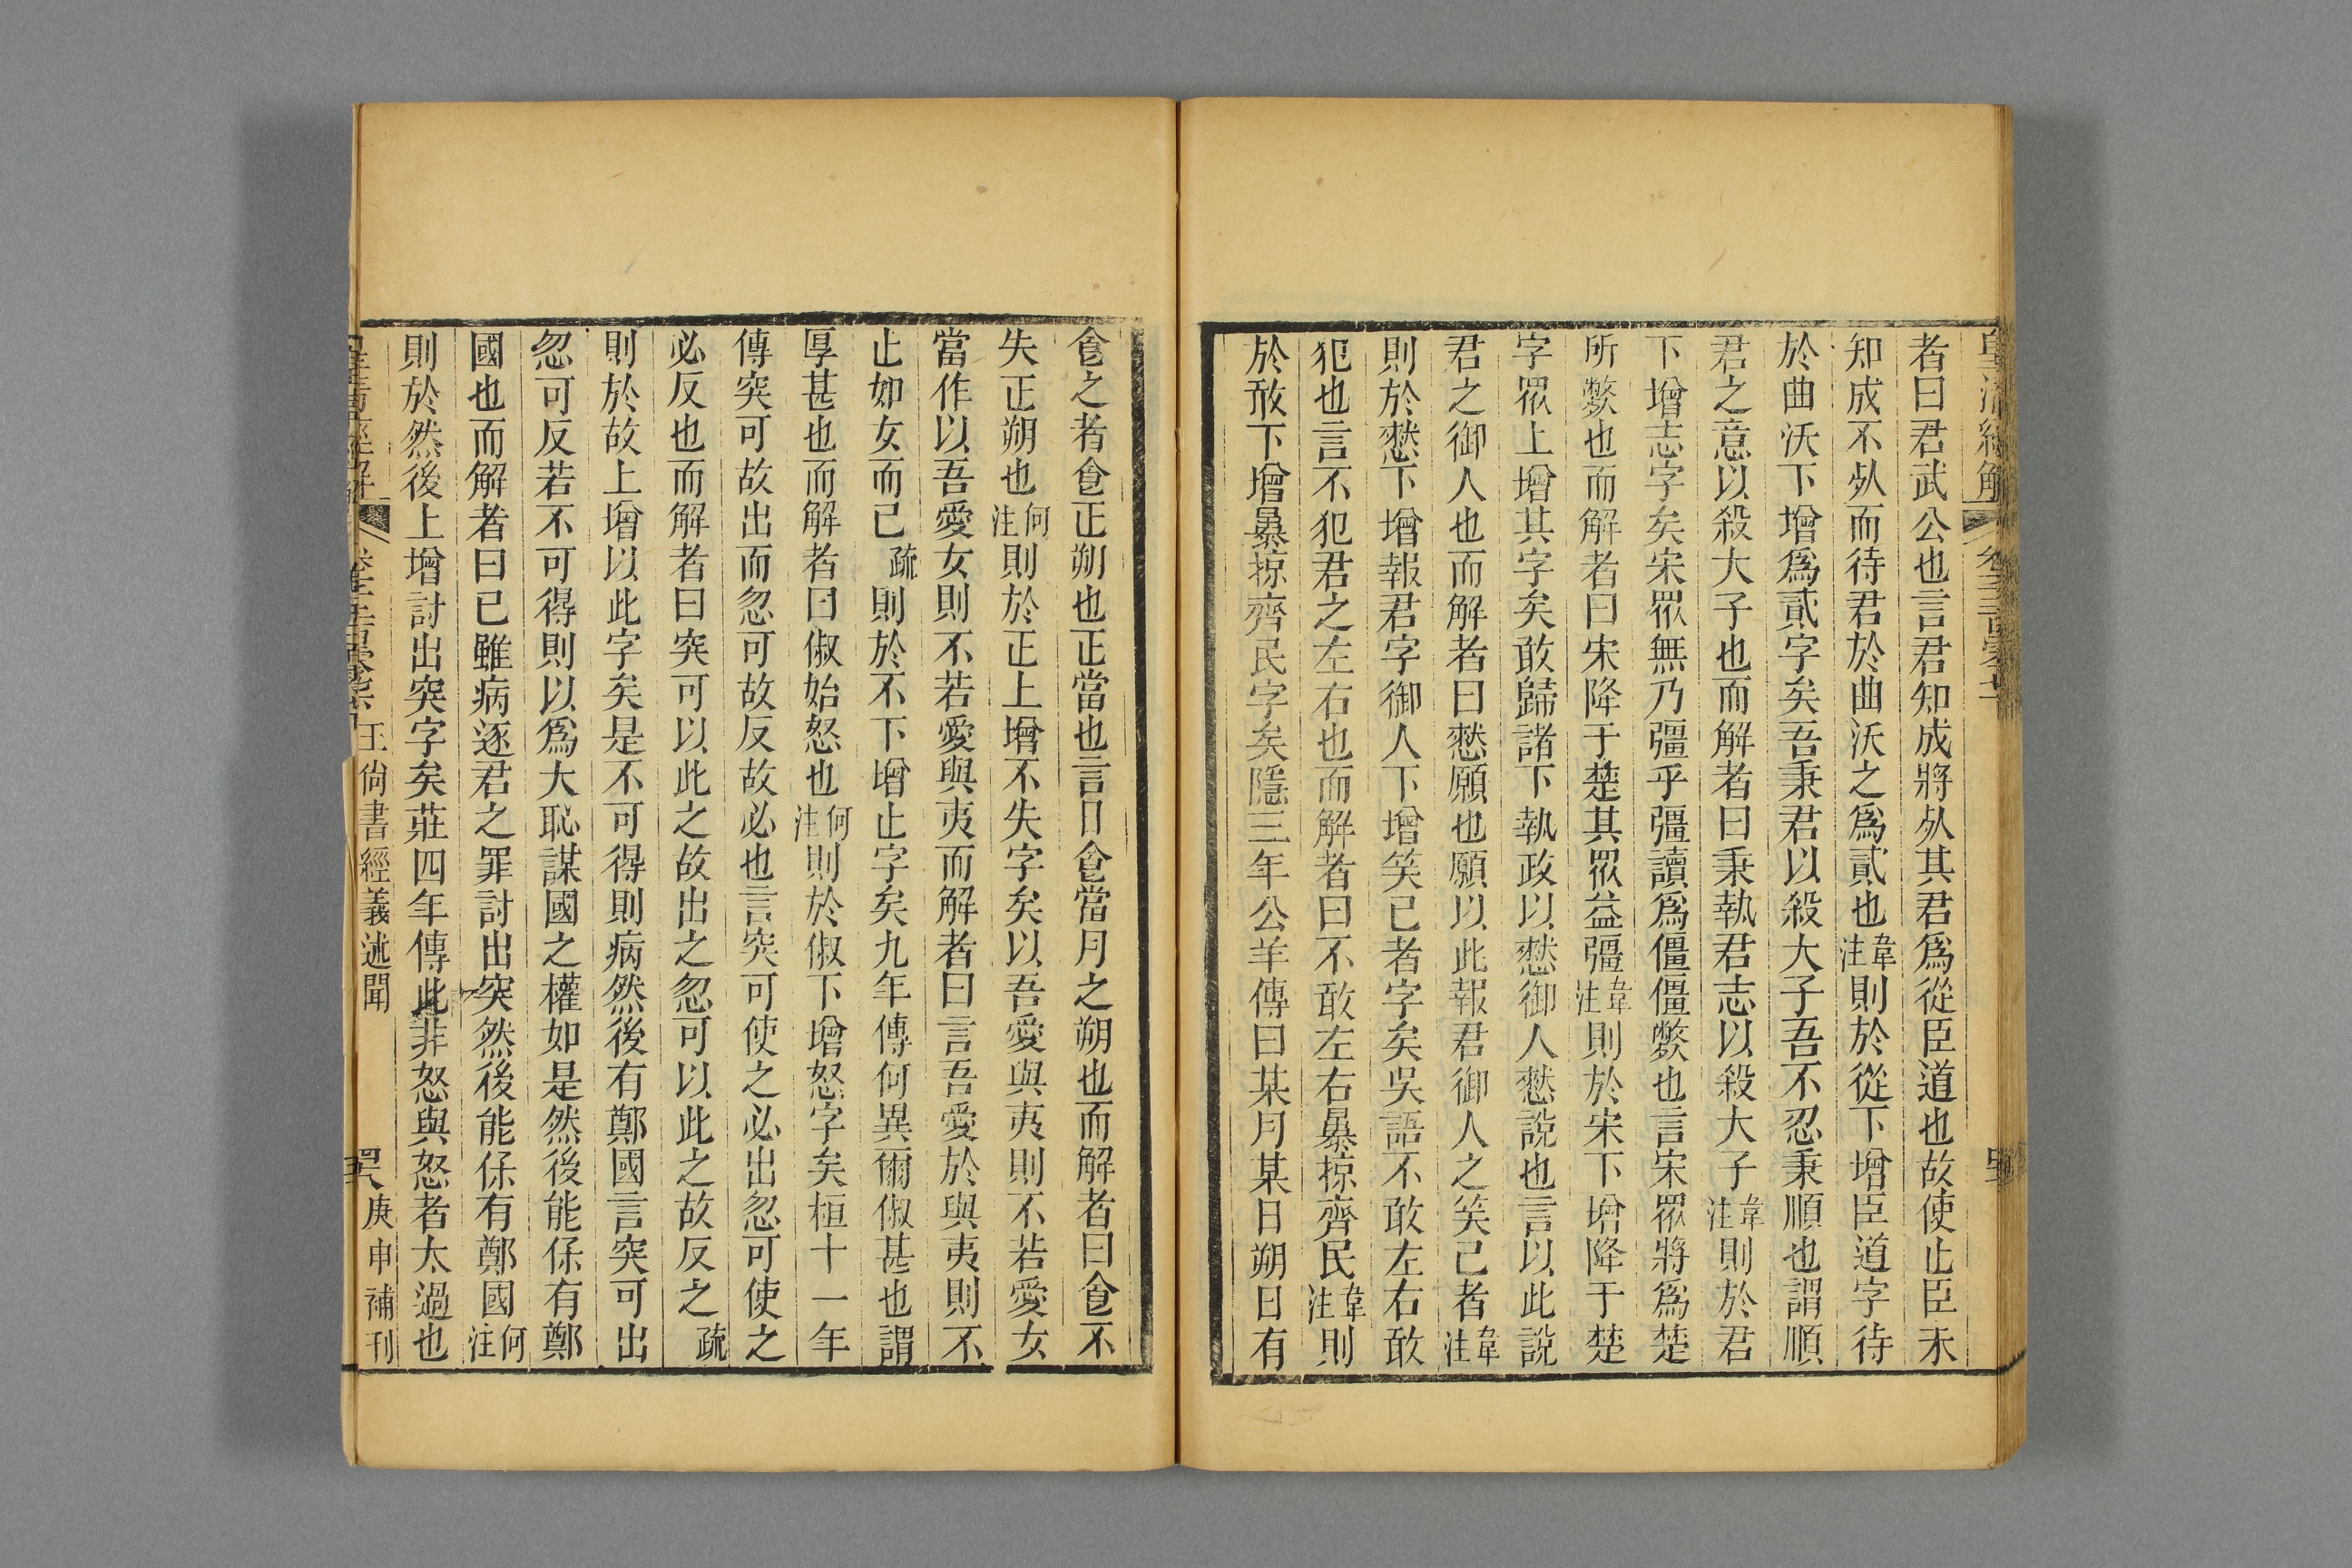 皇清經解
者曰君武公也言君知成將死其君爲從臣道也故使止臣未
知成不死而待君於曲沃之爲貳也韋注則於從下增臣道字待
於曲沃下增爲貳字矣吾秉君以殺大子吾不忍秉順也謂順
君之意以殺大子也而解者曰秉執君志以殺大子韋注則於君
下增志字矣宋眾無乃彊乎彊讀爲僵僵獘也言宋眾將爲楚
所獘也而解者曰宋降于楚其眾益彊韋注則於宋下增降于楚
字眾上增其字矣敢歸諸下執政以憖御人憖說也言以此說
君之御人也而解者曰憖願也願以此報君御人之笑己者韋注
則於憖下增報君字御人下增笑己者字矣吳語不敢左右敢
犯也言不犯君之左右也而解者曰不敢左右暴掠齊民韋注則
於敢下增暴掠齊民字矣隱三年公羊傳曰某月某日朔日有
食之者食正朔也正當也言日食當月之朔也而解者曰食不
失正朔也何注則於正上增不失字矣以吾愛與夷則不若愛女
當作以吾愛女則不若愛與夷而解者曰言吾愛於與夷則不
止如女而已疏則於不下增止字矣九年傳何異爾俶甚也謂
厚甚也而解者曰俶始怒也何注則於俶下增怒字矣桓十一年
傳突可故出而忽可故反故必也言突可使之必出忽可使之
必反也而解者曰突可以此之故出之忽可以此之故反之疏
則於故上增以此字矣是不可得則病然後有鄭國言突可出
忽可反若不可得則以爲大恥謀國之權如是然後能保有鄭
國也而解者曰己雖病逐君之罪討出突然後能保有鄭國何注
則於然後上增討出突字矣莊四年傳此非怒與怒者太過也
王尙書經義述聞
庚申補刊